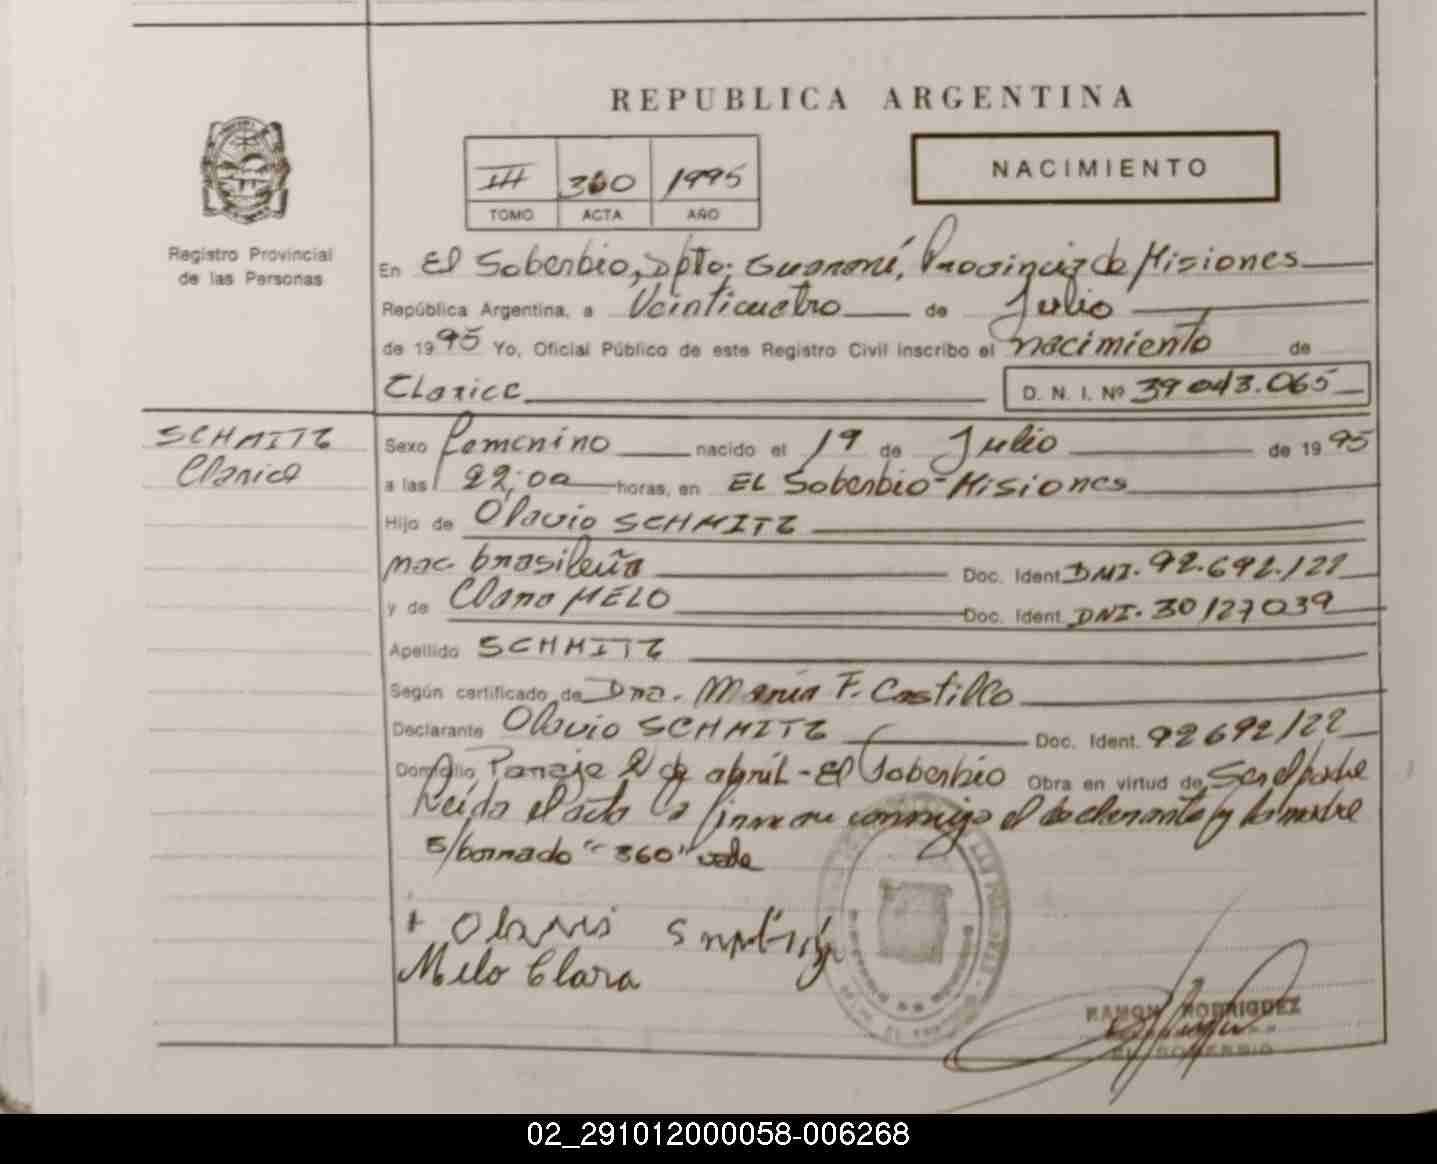 REPUBLICA ARGENTINA
III 360 1995
TOMO ACTA AÑO
NACIMIENTO
Registro Provincial
de las Personas
En El Soberbio, Dpto: Guaraní, Provincia de Misiones
República Argentina, a Veinticuatro de Julio
de 1995 Yo, Oficial Público de este Registro Civil inscribo el nacimiento de
Clarice D. N. I. Nº 39.043.065
SCHMITZ
Clarice
Sexo femenino nacido el 19 de Julio de 1995
a las 22,00 horas, en El Soberbio - Misiones
Hijo de Olavio SCHMITZ
nac. brasileña Doc. Ident. DNI. 92.692.122
y de Clara MELO Doc. Ident. DNI. 30127039
Apellido SCHMITZ
Según certificado de Dra. María F. Castillo
Declarante Olavio SCHMITZ Doc. Ident. 92692122
Domicilio Paraje 2 de abril - El Soberbio Obra en virtud de Ser el padre
Leída el acta la firman conmigo el declarante y la madre
S/borrado "360" vale
Melo Clara
RAMON RODRIGUEZ
EL SOBERBIO
02_291012000058-006268